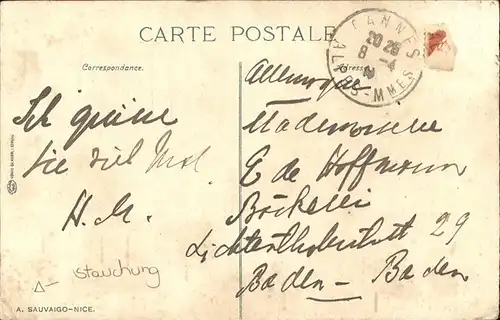 CARTE POSTALE
Correspondance.
Adresse
CANNES
20 25
8 - 4
ALPES-MMES
Allemagne
Ich
Sie viel Mal
H. M.
Mademoiselle
E de Hoffmann
Bäckerei
Lichtenthalerstrsstr 29
Baden - Baden
Stauchung
A. SAUVAIGO-NICE.